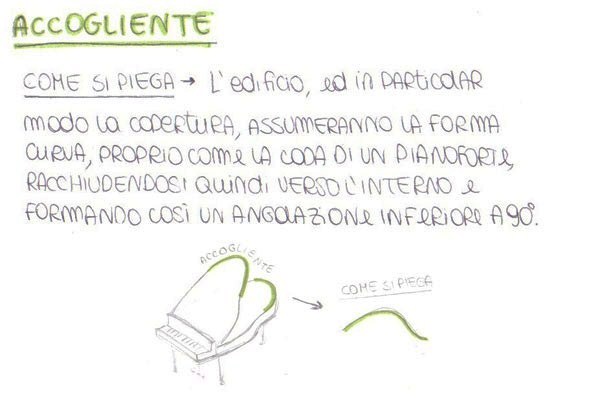 ACCOGLIENTE
COME SI PIEGA → L'edificio, ed in PARTICOLAR
modo la COPERTURA, ASSUMERANNO LA FORMA
CURVA, PROPRIO COME LA CODA DI UN PIANOFORTE,
RACCHIUDENDOSI QUINDI VERSO L'INTERNO e
FORMANDO COSÌ UN ANGOLAZIONE INFERIORE A 90°.
ACCOGLIENTE
COME SI PIEGA